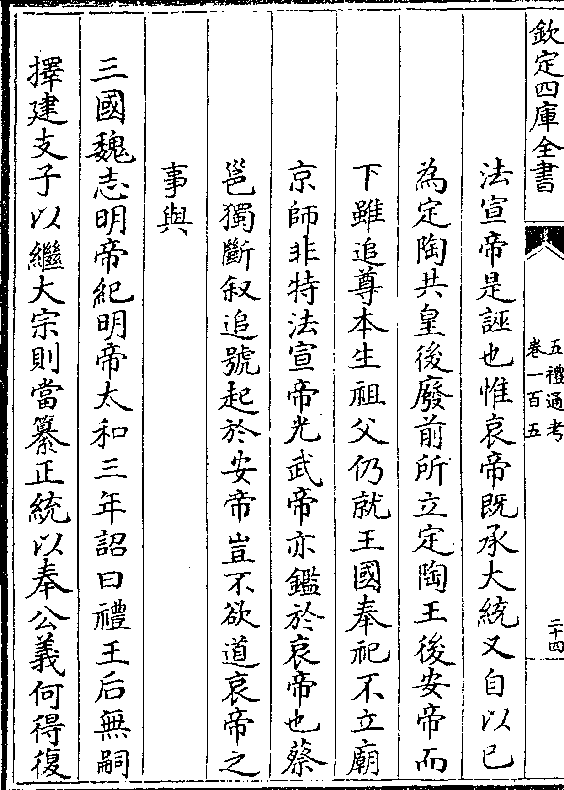 欽定四庫全書
五禮通考
卷一百五
二十四
法宣帝是誣也惟哀帝既承大統又自以已
為定陶共皇後廢前所立定陶王後安帝而
下雖追尊本生祖父仍就王國奉祀不立廟
京師非特法宣帝光武帝亦鑑於哀帝也蔡
邕獨斷叙追號起於安帝豈不欲道哀帝之
事與
三國魏志明帝紀明帝太和三年詔曰禮王后無嗣
擇建支子以繼大宗則當纂正統以奉公義何得復